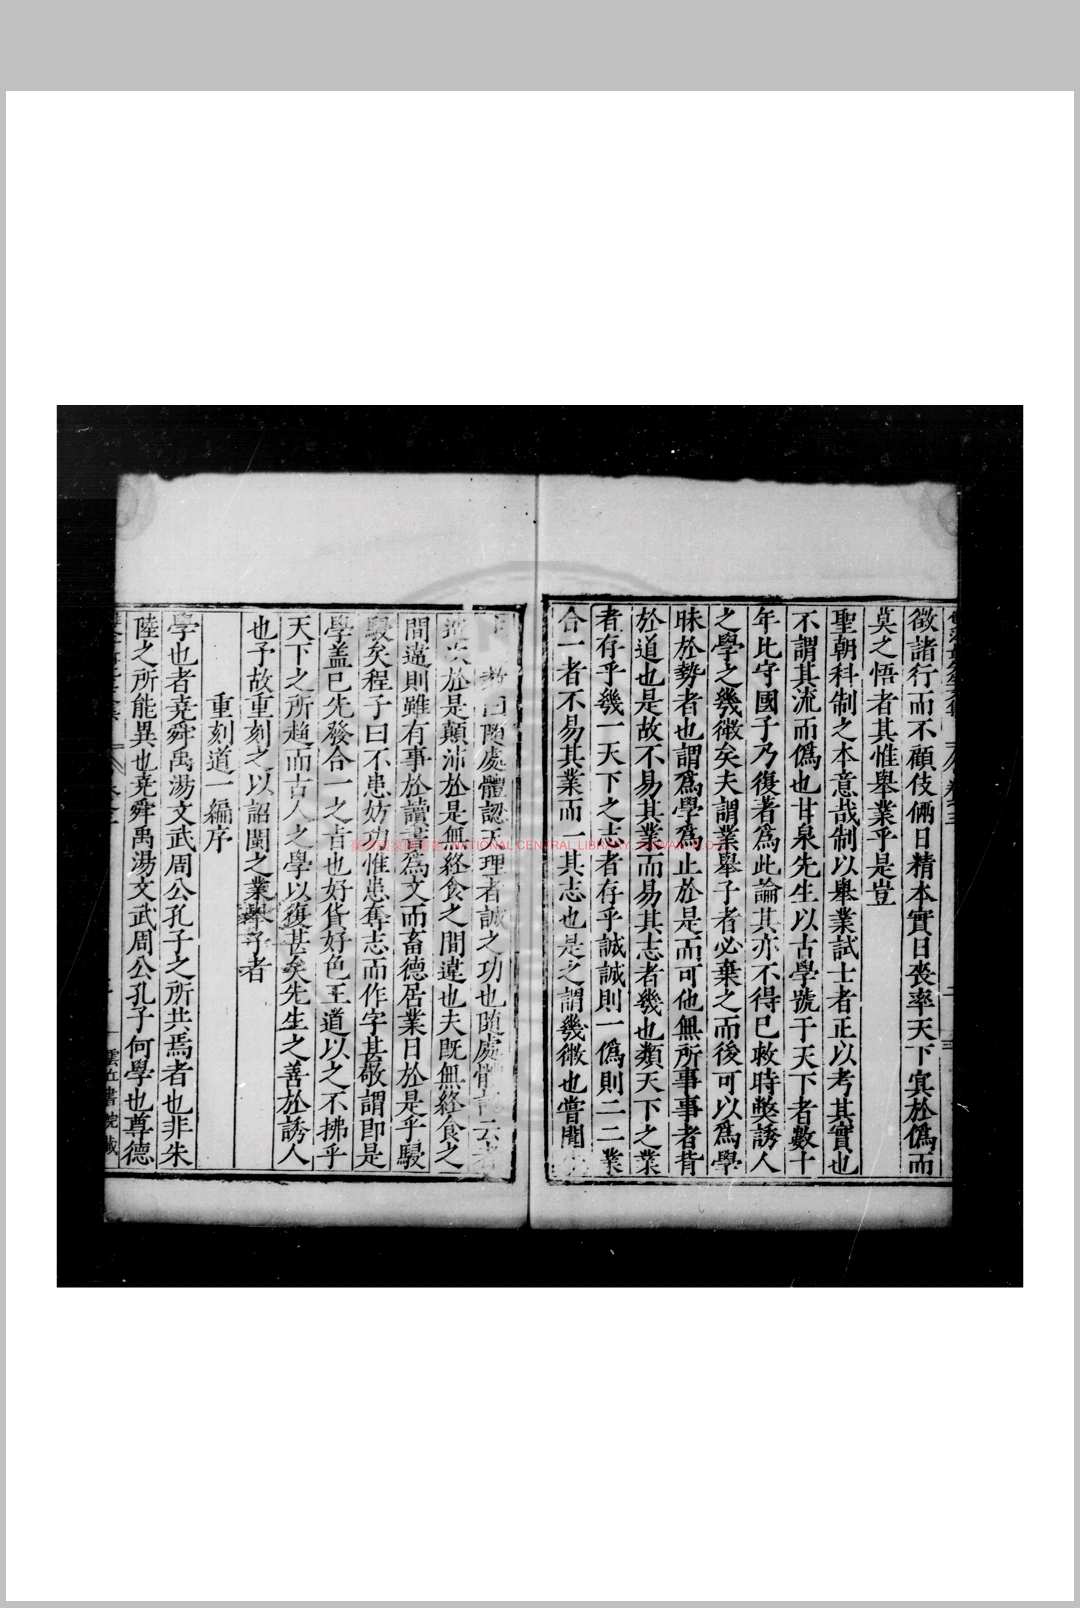 徵諸行而不顧伎倆日精本實日喪率天下㝠於僞而
莫之悟者其惟舉業乎是豈
聖朝科制之本意哉制以舉業試士者正以考其實也
不謂其流而僞也甘泉先生以古學號于天下者數十
年比守國子乃復著爲此論其亦不得已救時獘誘人
之學之幾微矣夫謂業舉子者必棄之而後可以爲學
昧於勢者也謂爲學爲止於是而可他無所事事者背
於道也是故不易其業而易其志者幾也類天下之業
者存乎幾一天下之志者存乎誠誠則一僞則二二業
合一者不易其業而一其志也是之謂幾微也嘗聞
隨處體認天理者誠之功也隨處體認云者
造次於是顛沛於是無終食之間違也夫既無終食之
間違則雖有事於讀書爲文而畜德居業日於是乎駸
駸矣程子曰不患妨功惟患奪志而作字甚敬謂即是
學盖已先發合一之旨也好貨好色王道以之不拂乎
天下之所趨而古人之學以復甚矣先生之善於誘人
也予故重刻之以詔閩之業舉子者
重刻道一編序
學也者堯舜禹湯文武周公孔子之所共焉者也非朱
陸之所能異也堯舜禹湯文武周公孔子何學也尊德
雲丘書院藏
NATIONAL CENTRAL LIBRARY